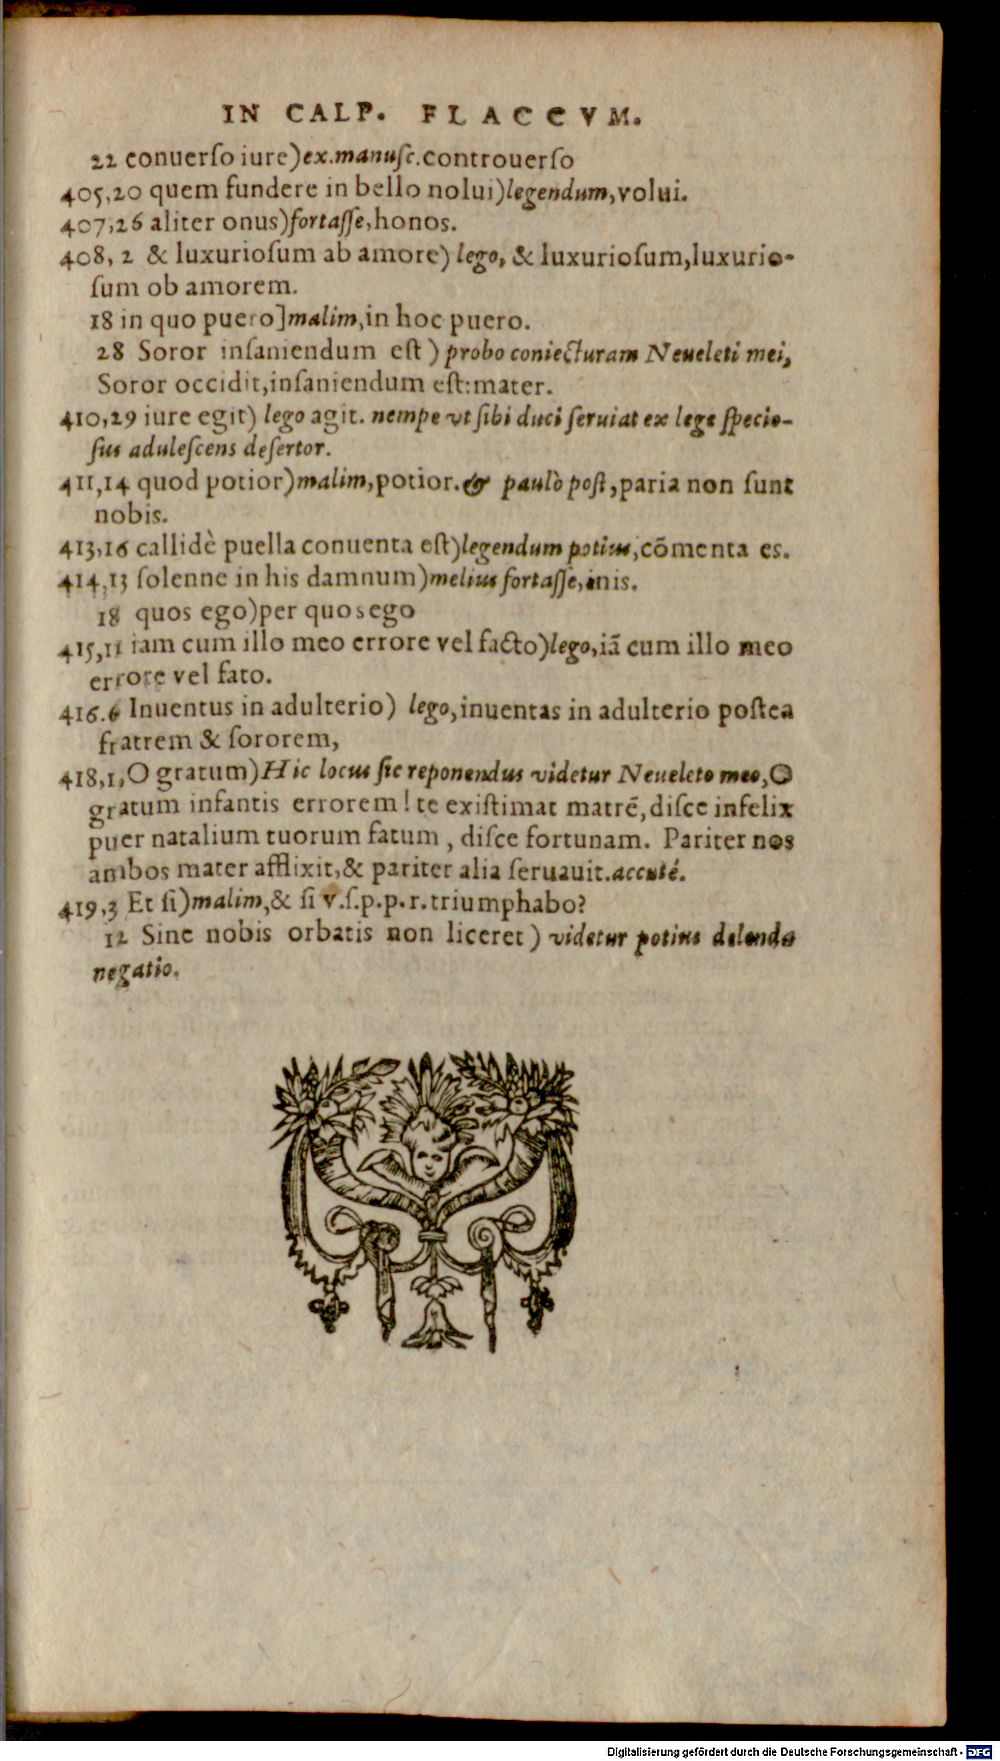 IN CALP. FLACCVM.
22 conuerſo iure)ex.manuſc.controuerſo
405,20 quem fundere in bello nolui)legendum,volui.
407,26 aliter onus)fortaſſe,honos.
408, 2 & luxurioſum ab amore) lego, & luxurioſum,luxurio-
ſum ob amorem.
18 in quo puero]malim,in hoc puero.
28 Soror inſaniendum eſt) probo coniecturam Neueleti mei,
Soror occidit,inſaniendum eſt:mater.
410,29 iure egit) lego agit. nempe vt ſibi duci ſeruiat ex lege ſpecio-
ſus aduleſcens deſertor.
411,14 quod potior)malim,potior.& paulò poſt,paria non ſunt
nobis.
413,16 callidè puella conuenta eſt)legendum potius,cōmenta es.
414,13 ſolenne in his damnum)melius fortaſſe,inis.
18 quos ego)per quos ego
415,11 iam cum illo meo errore vel facto)lego,iā cum illo meo
errore vel fato.
416.6 Inuentus in adulterio) lego,inuentas in adulterio poſtea
fratrem & ſororem,
418,1,O gratum)Hic locus ſic reponendus videtur Neueleto meo,O
gratum infantis errorem! te exiſtimat matrē,diſce infelix
puer natalium tuorum fatum , diſce fortunam. Pariter nos
ambos mater afflixit,& pariter alia ſeruauit.accuté.
419,3 Et ſi)malim,& ſi v.ſ.p.p.r.triumphabo?
12 Sine nobis orbatis non liceret) videtur potius delenda
negatio.
Digitalisierung gefördert durch die Deutsche Forschungsgemeinschaft - DFG